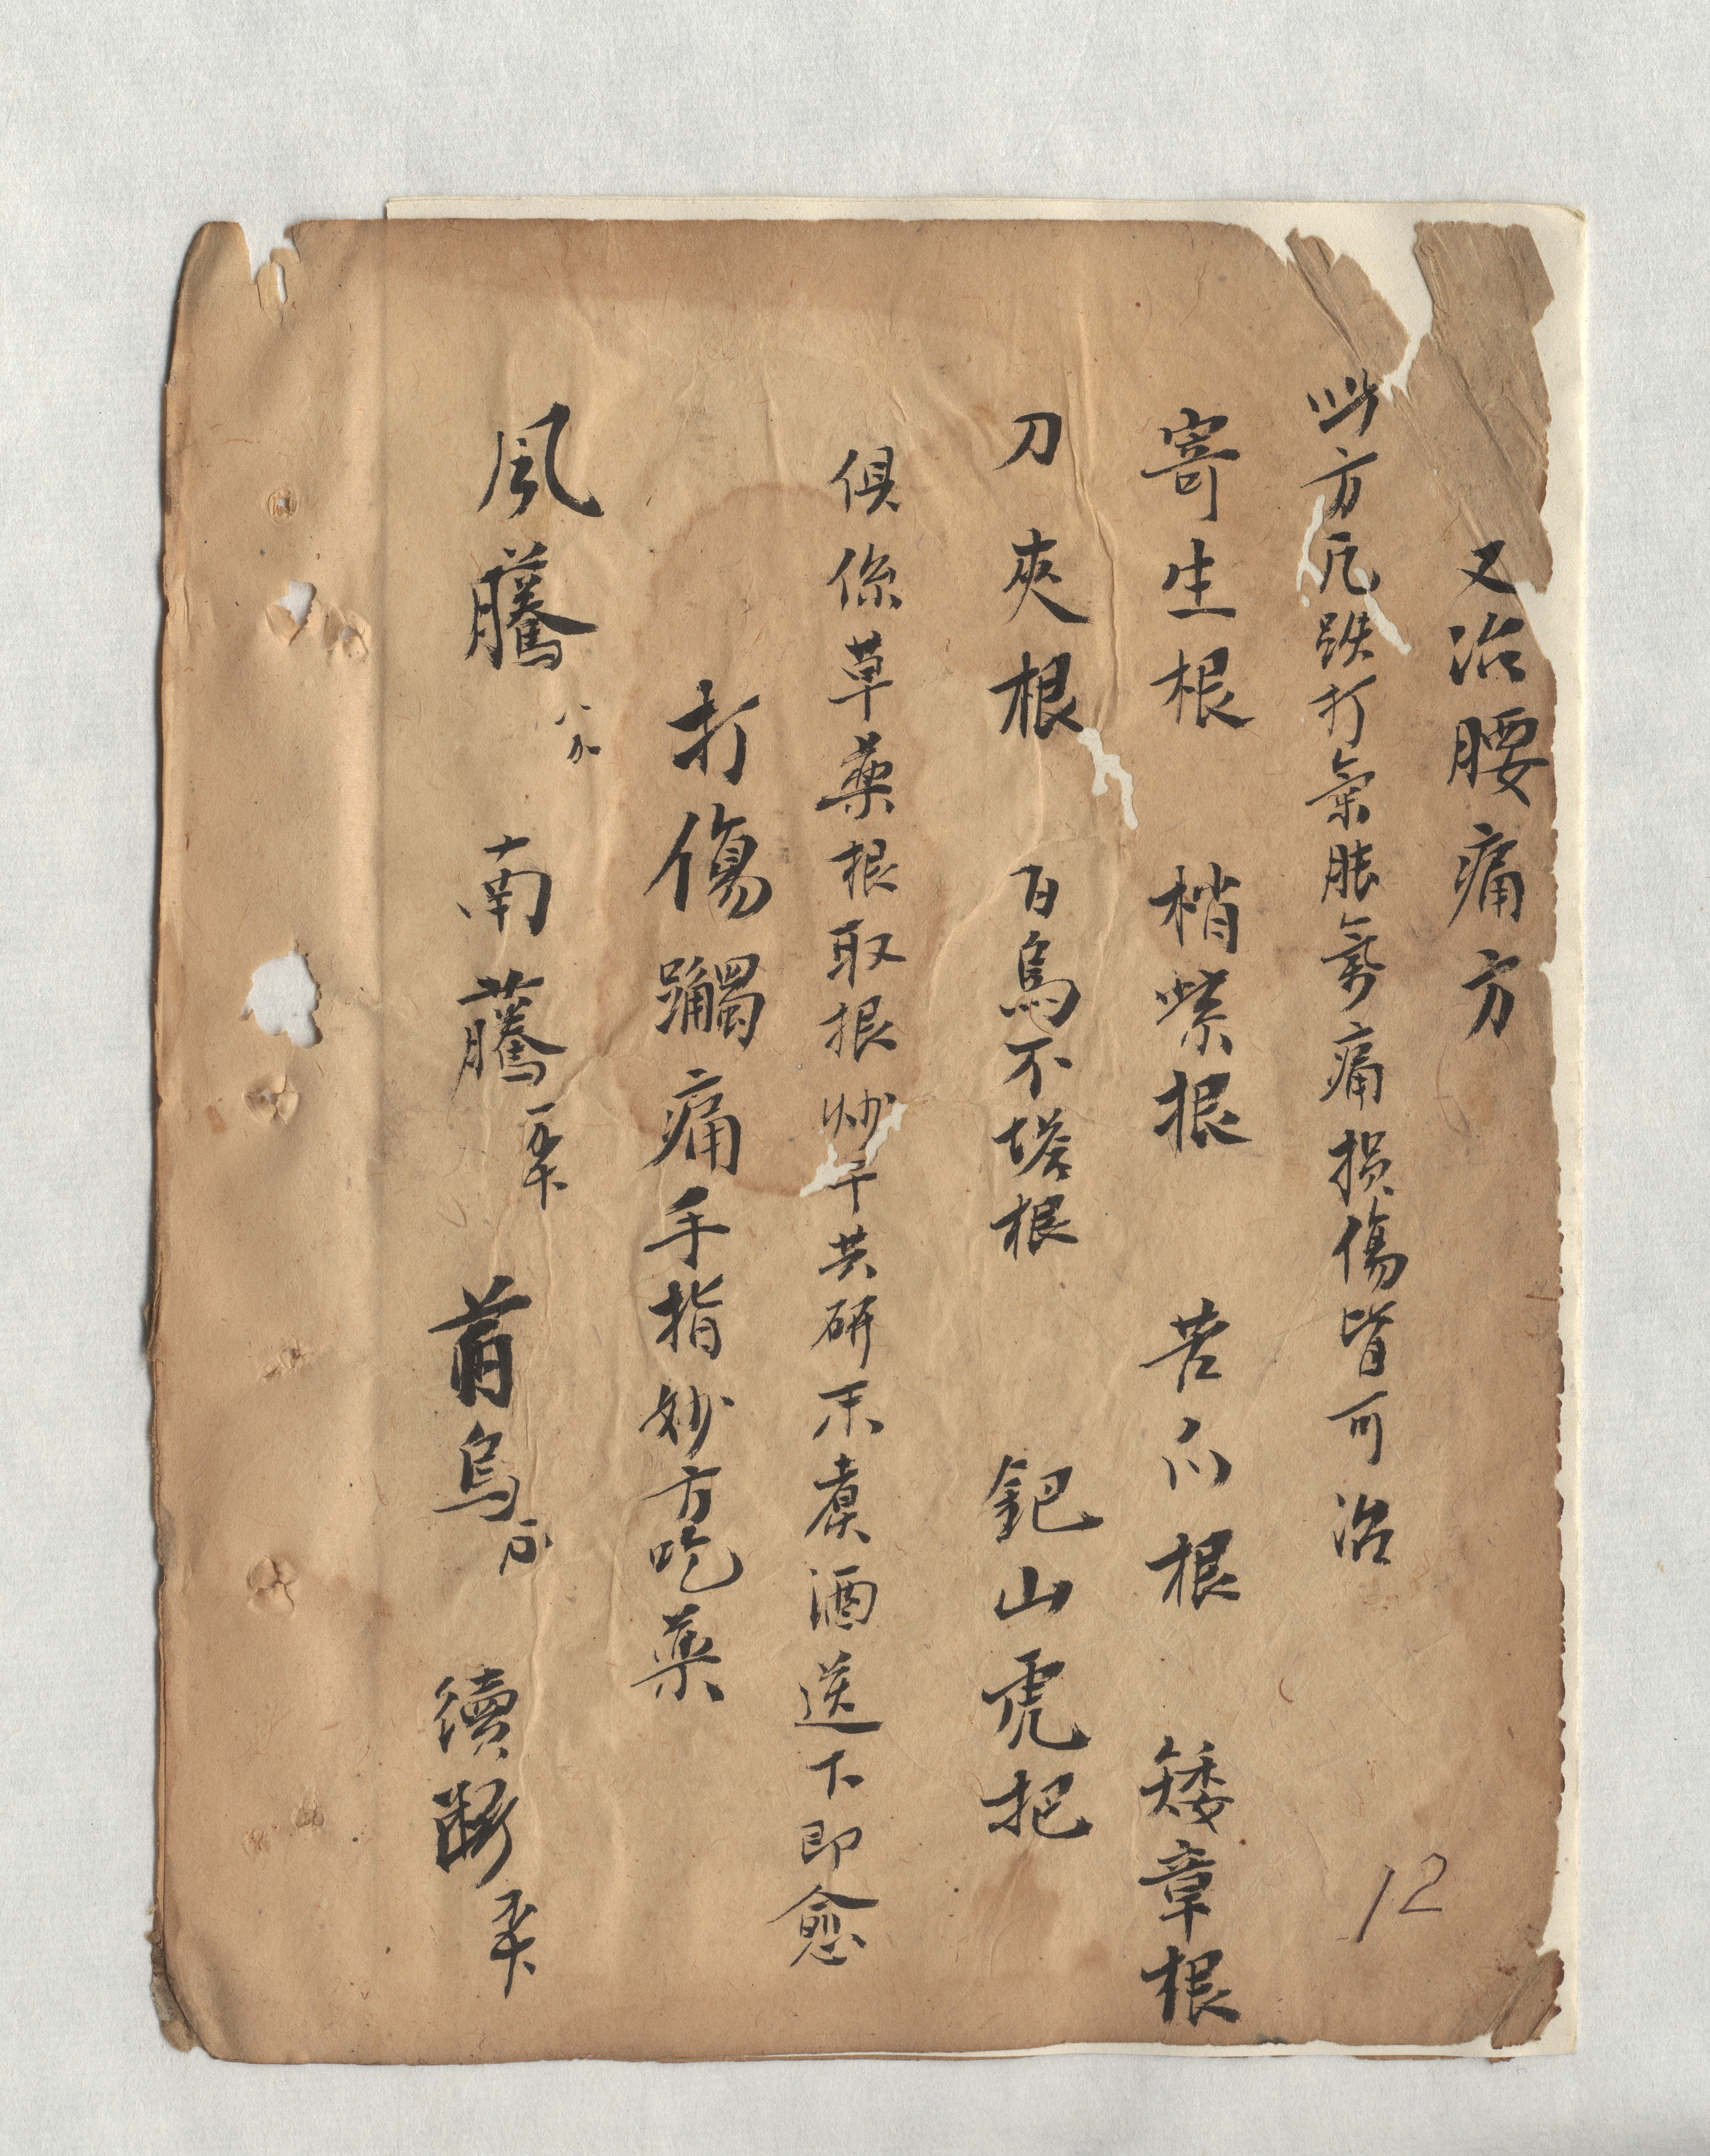 又治腰痛方
此方凡跌打氣脹氣痛損傷皆可治
寄生根 梢紫根 苦爪根 矮章根
刀夾根 百鳥不塔根 鈀山虎把
俱係草藥根取根炒干共研末煮酒送下即愈
打傷痛手指妙方吃藥
風藤 八分 南藤 首烏 續断
12